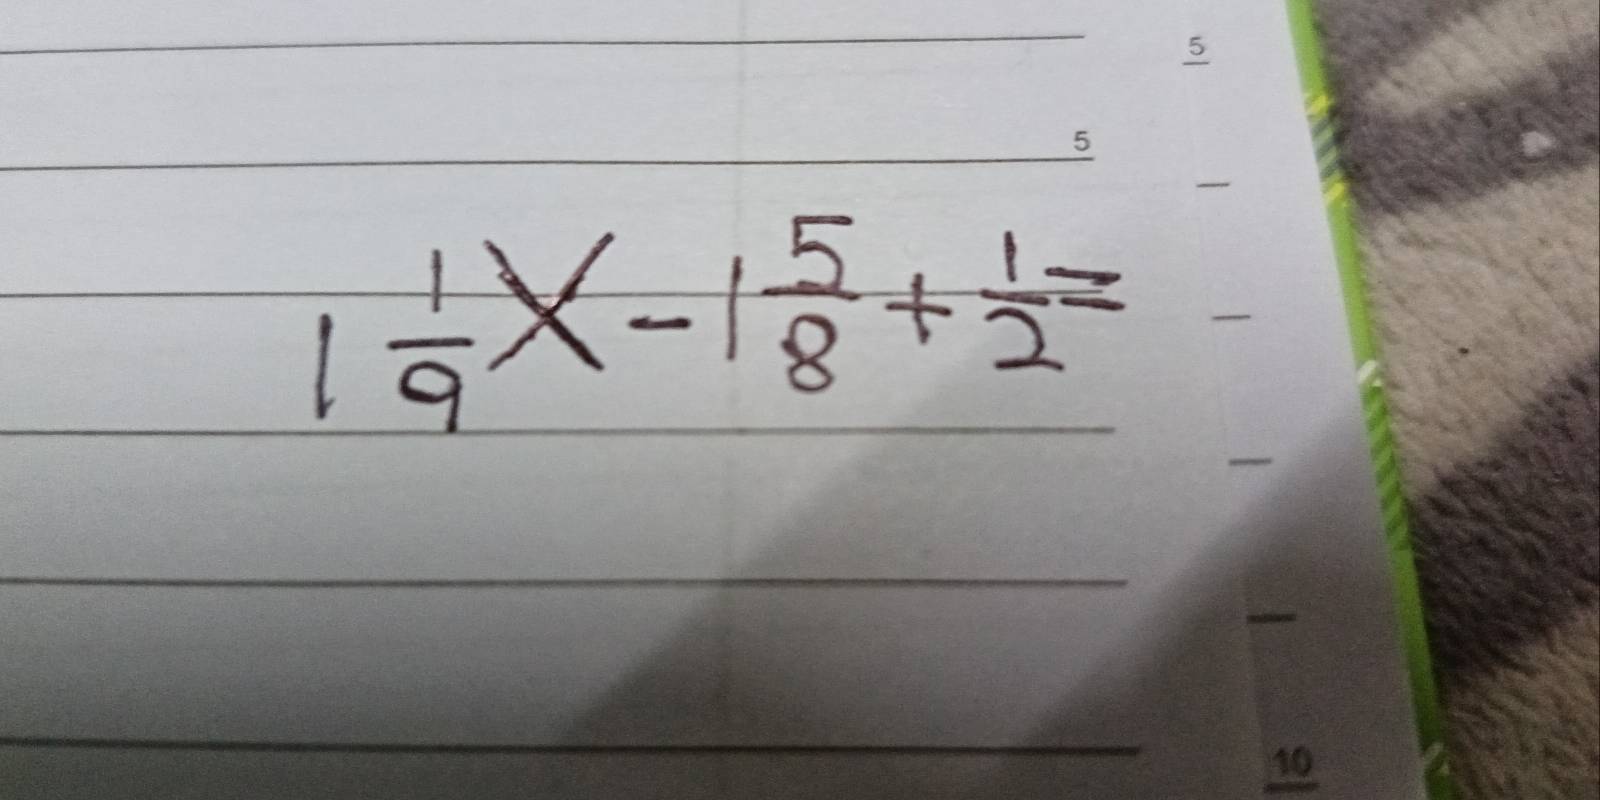 5
5
1 1/9 X - 1 5/8 + 1/2 =
10